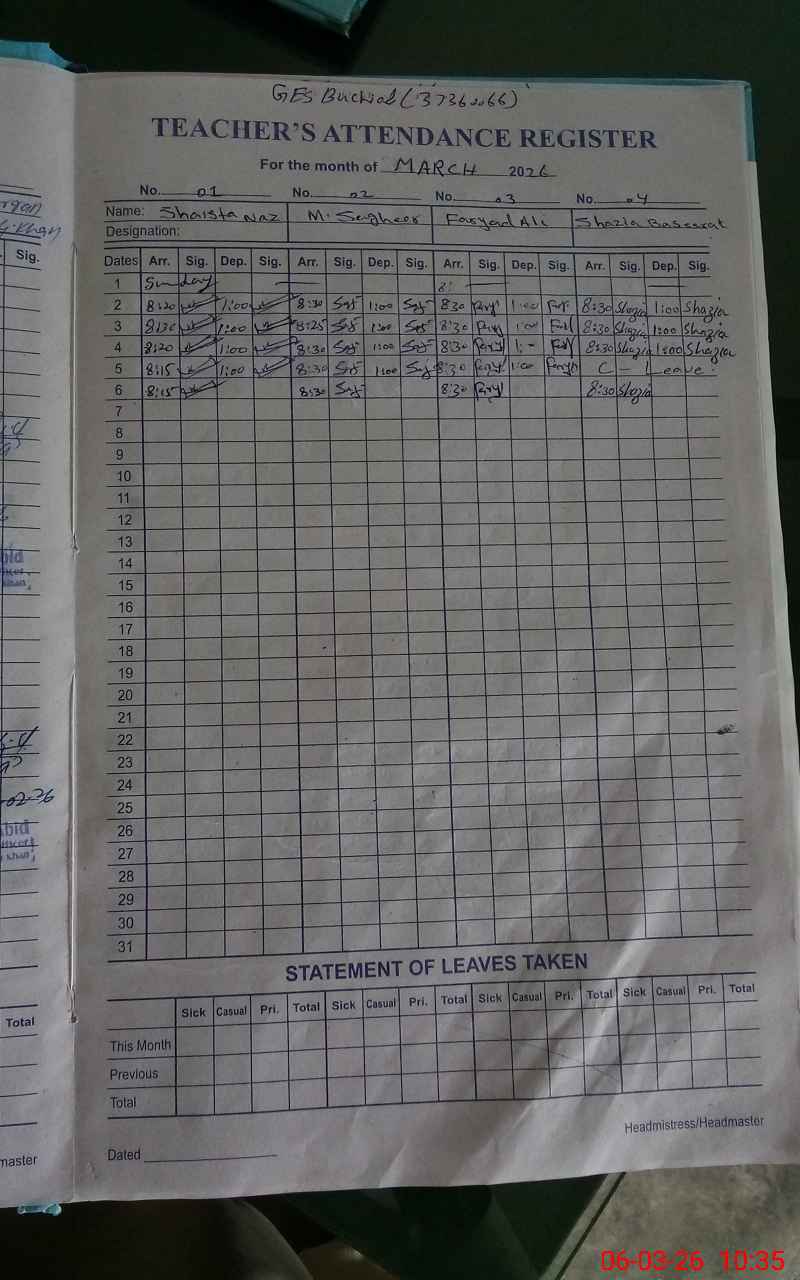 GES Buchial (37360066)
TEACHER'S ATTENDANCE REGISTER
For the month of MARCH 2026
No. 01 No. 02 No. 03 No. 04
Name: Shaista Naz M. Sagheer Faryad Ali Shazia Baseerat
Designation:
Dates Arr. Sig. Dep. Sig. Arr. Sig. Dep. Sig. Arr. Sig. Dep. Sig. Arr. Sig. Dep. Sig.
1 Sunday
2 8:20 1:00 8:30 1:00 8:30 1:00 8:30 Shazia 1:00 Shazia
3 8:20 1:00 8:25 1:00 8:30 1:00 8:30 Shazia 1:00 Shazia
4 8:20 1:00 8:30 1:00 8:30 1:- 8:30 Shazia 1:00 Shazia
5 8:15 1:00 8:30 1:00 8:30 1:00 C - Leave.
6 8:15 8:30 8:30 8:30 Shazia
7
8
9
10
11
12
13
14
15
16
17
18
19
20
21
22
23
24
25
26
27
28
29
30
31
STATEMENT OF LEAVES TAKEN
Sick Casual Pri. Total Sick Casual Pri. Total Sick Casual Pri. Total Sick Casual Pri. Total
This Month
Previous
Total
Headmistress/Headmaster
Dated
Sig.
Total
master
06-03-26 10:35